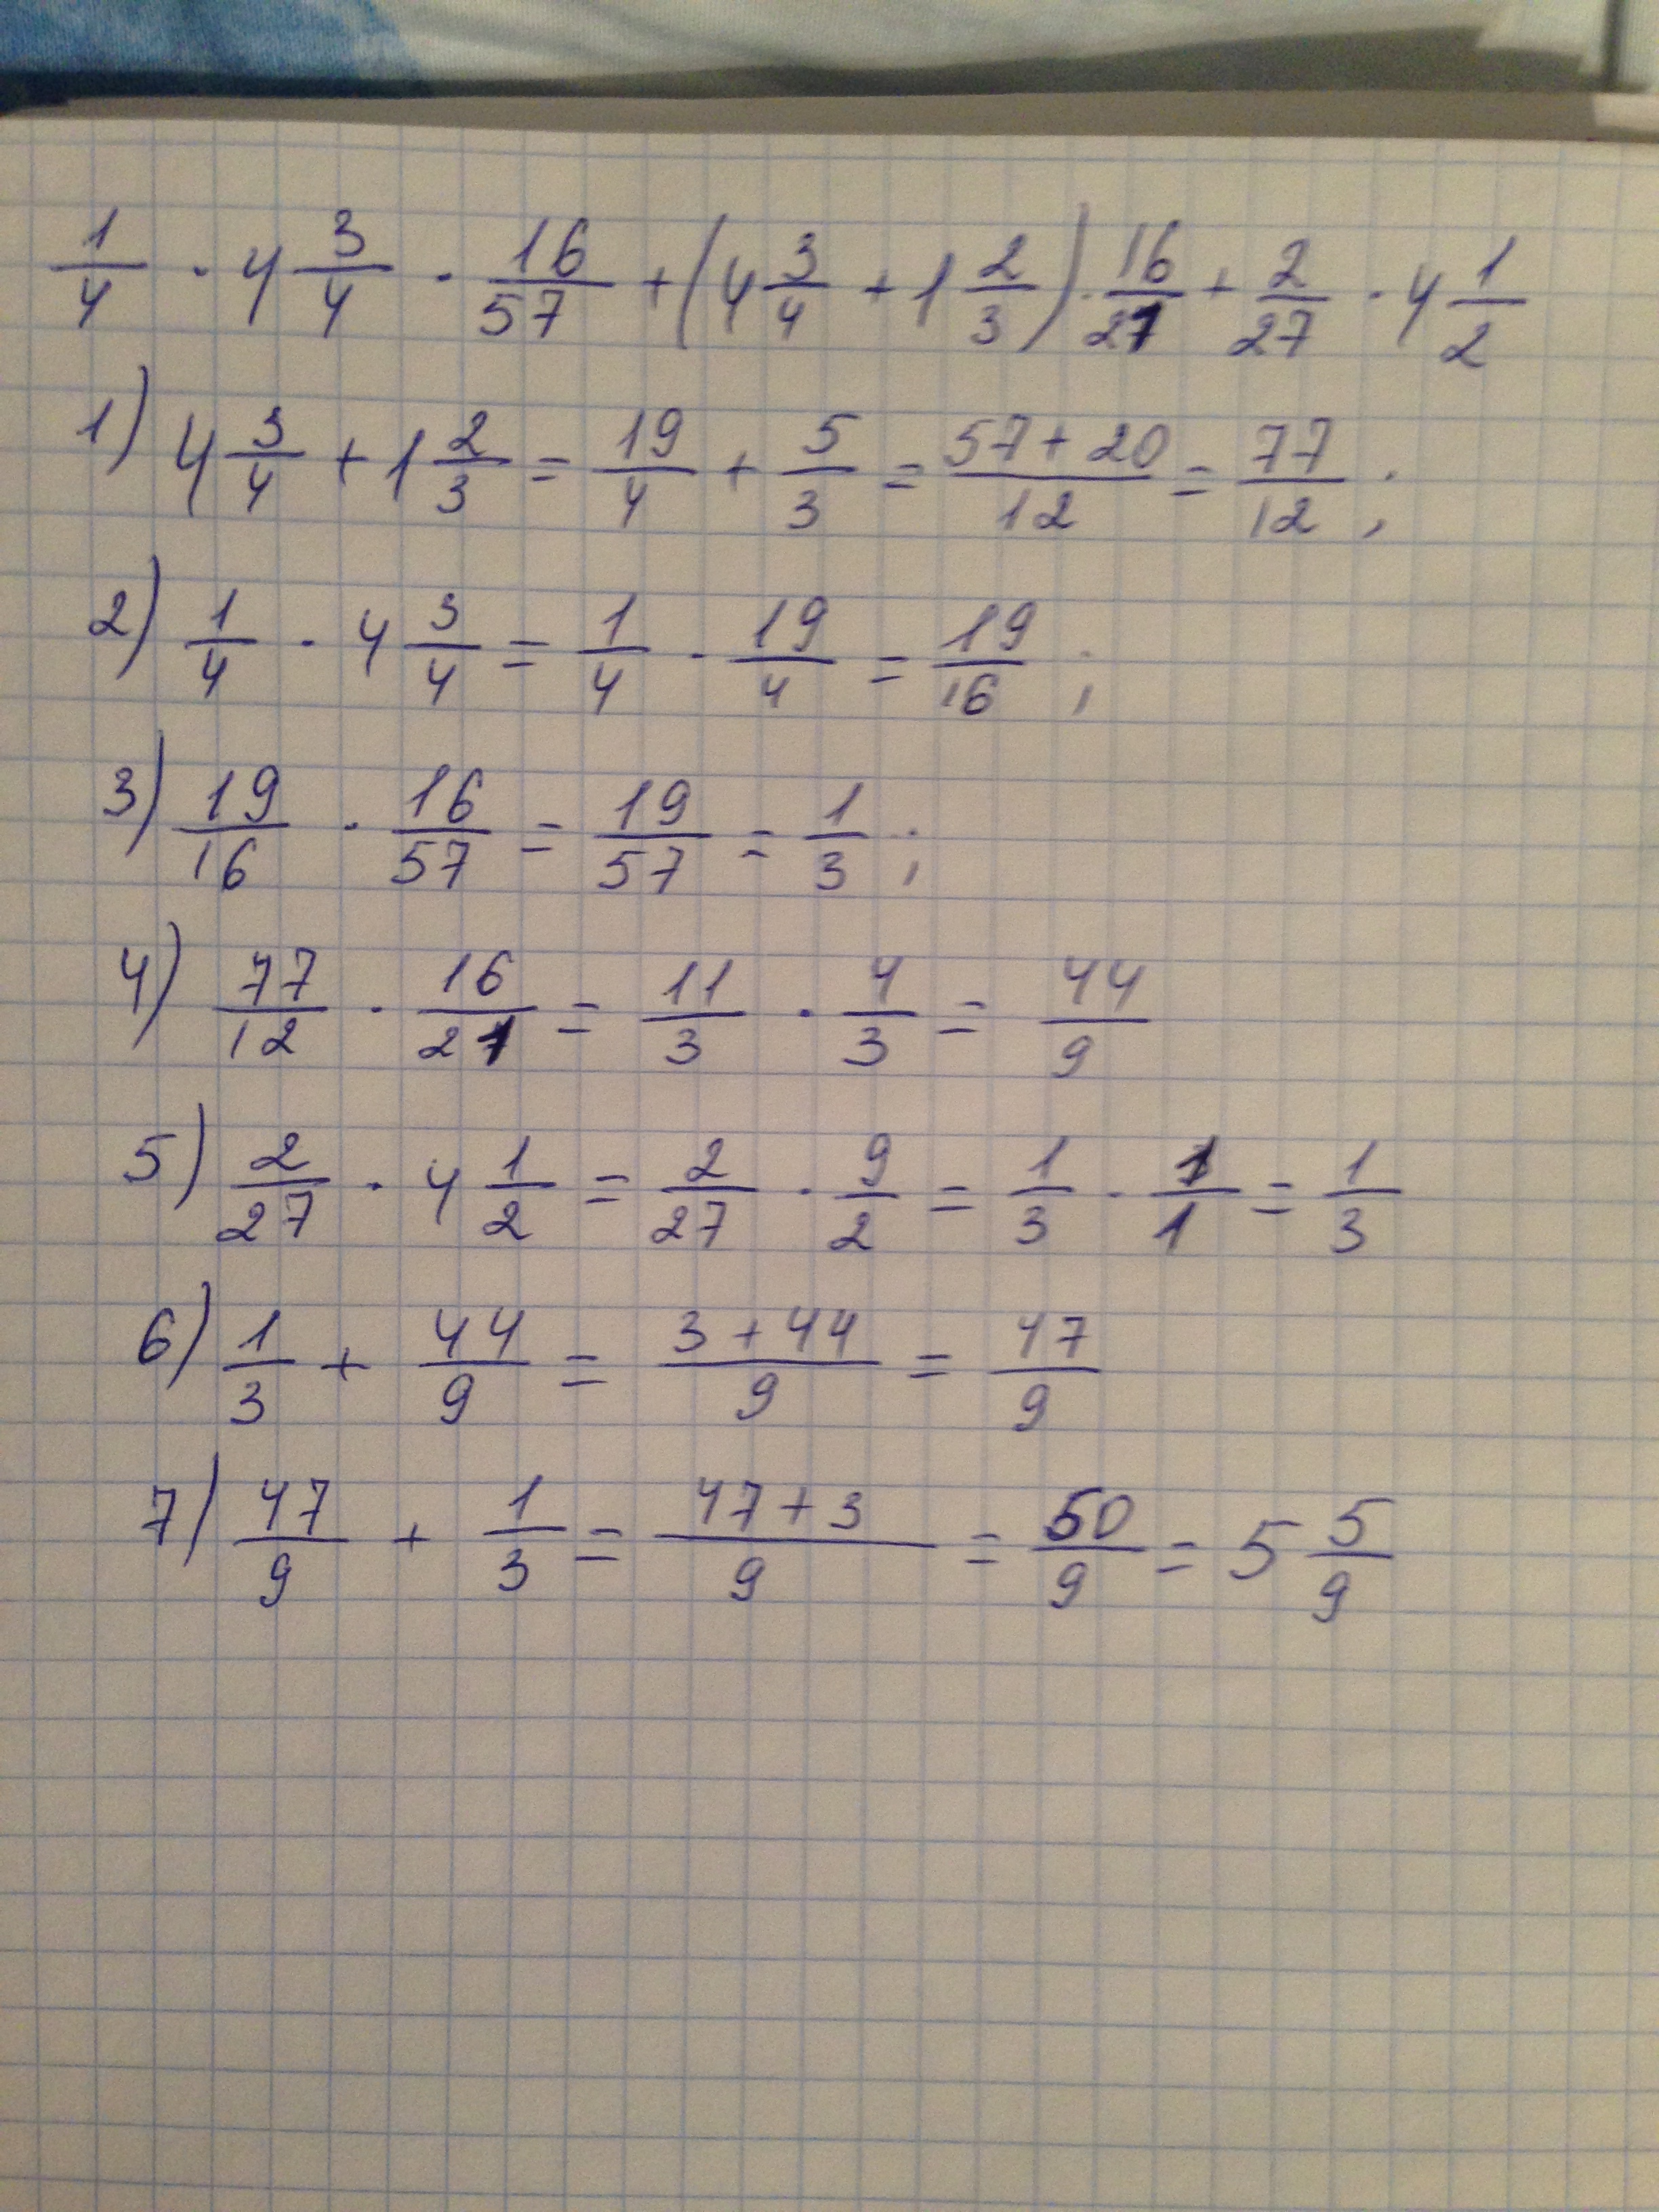 1/4 · 4 3/4 · 16/57 + (4 3/4 + 1 2/3) · 16/21 + 2/27 · 4 1/2
1) 4 3/4 + 1 2/3 = 19/4 + 5/3 = (57 + 20)/12 = 77/12 ;
2) 1/4 · 4 3/4 = 1/4 · 19/4 = 19/16 ;
3) 19/16 · 16/57 = 19/57 = 1/3 ;
4) 77/12 · 16/21 = 11/3 · 4/3 = 44/9
5) 2/27 · 4 1/2 = 2/27 · 9/2 = 1/3 · 1/1 = 1/3
6) 1/3 + 44/9 = (3 + 44)/9 = 47/9
7) 47/9 + 1/3 = (47 + 3)/9 = 50/9 = 5 5/9